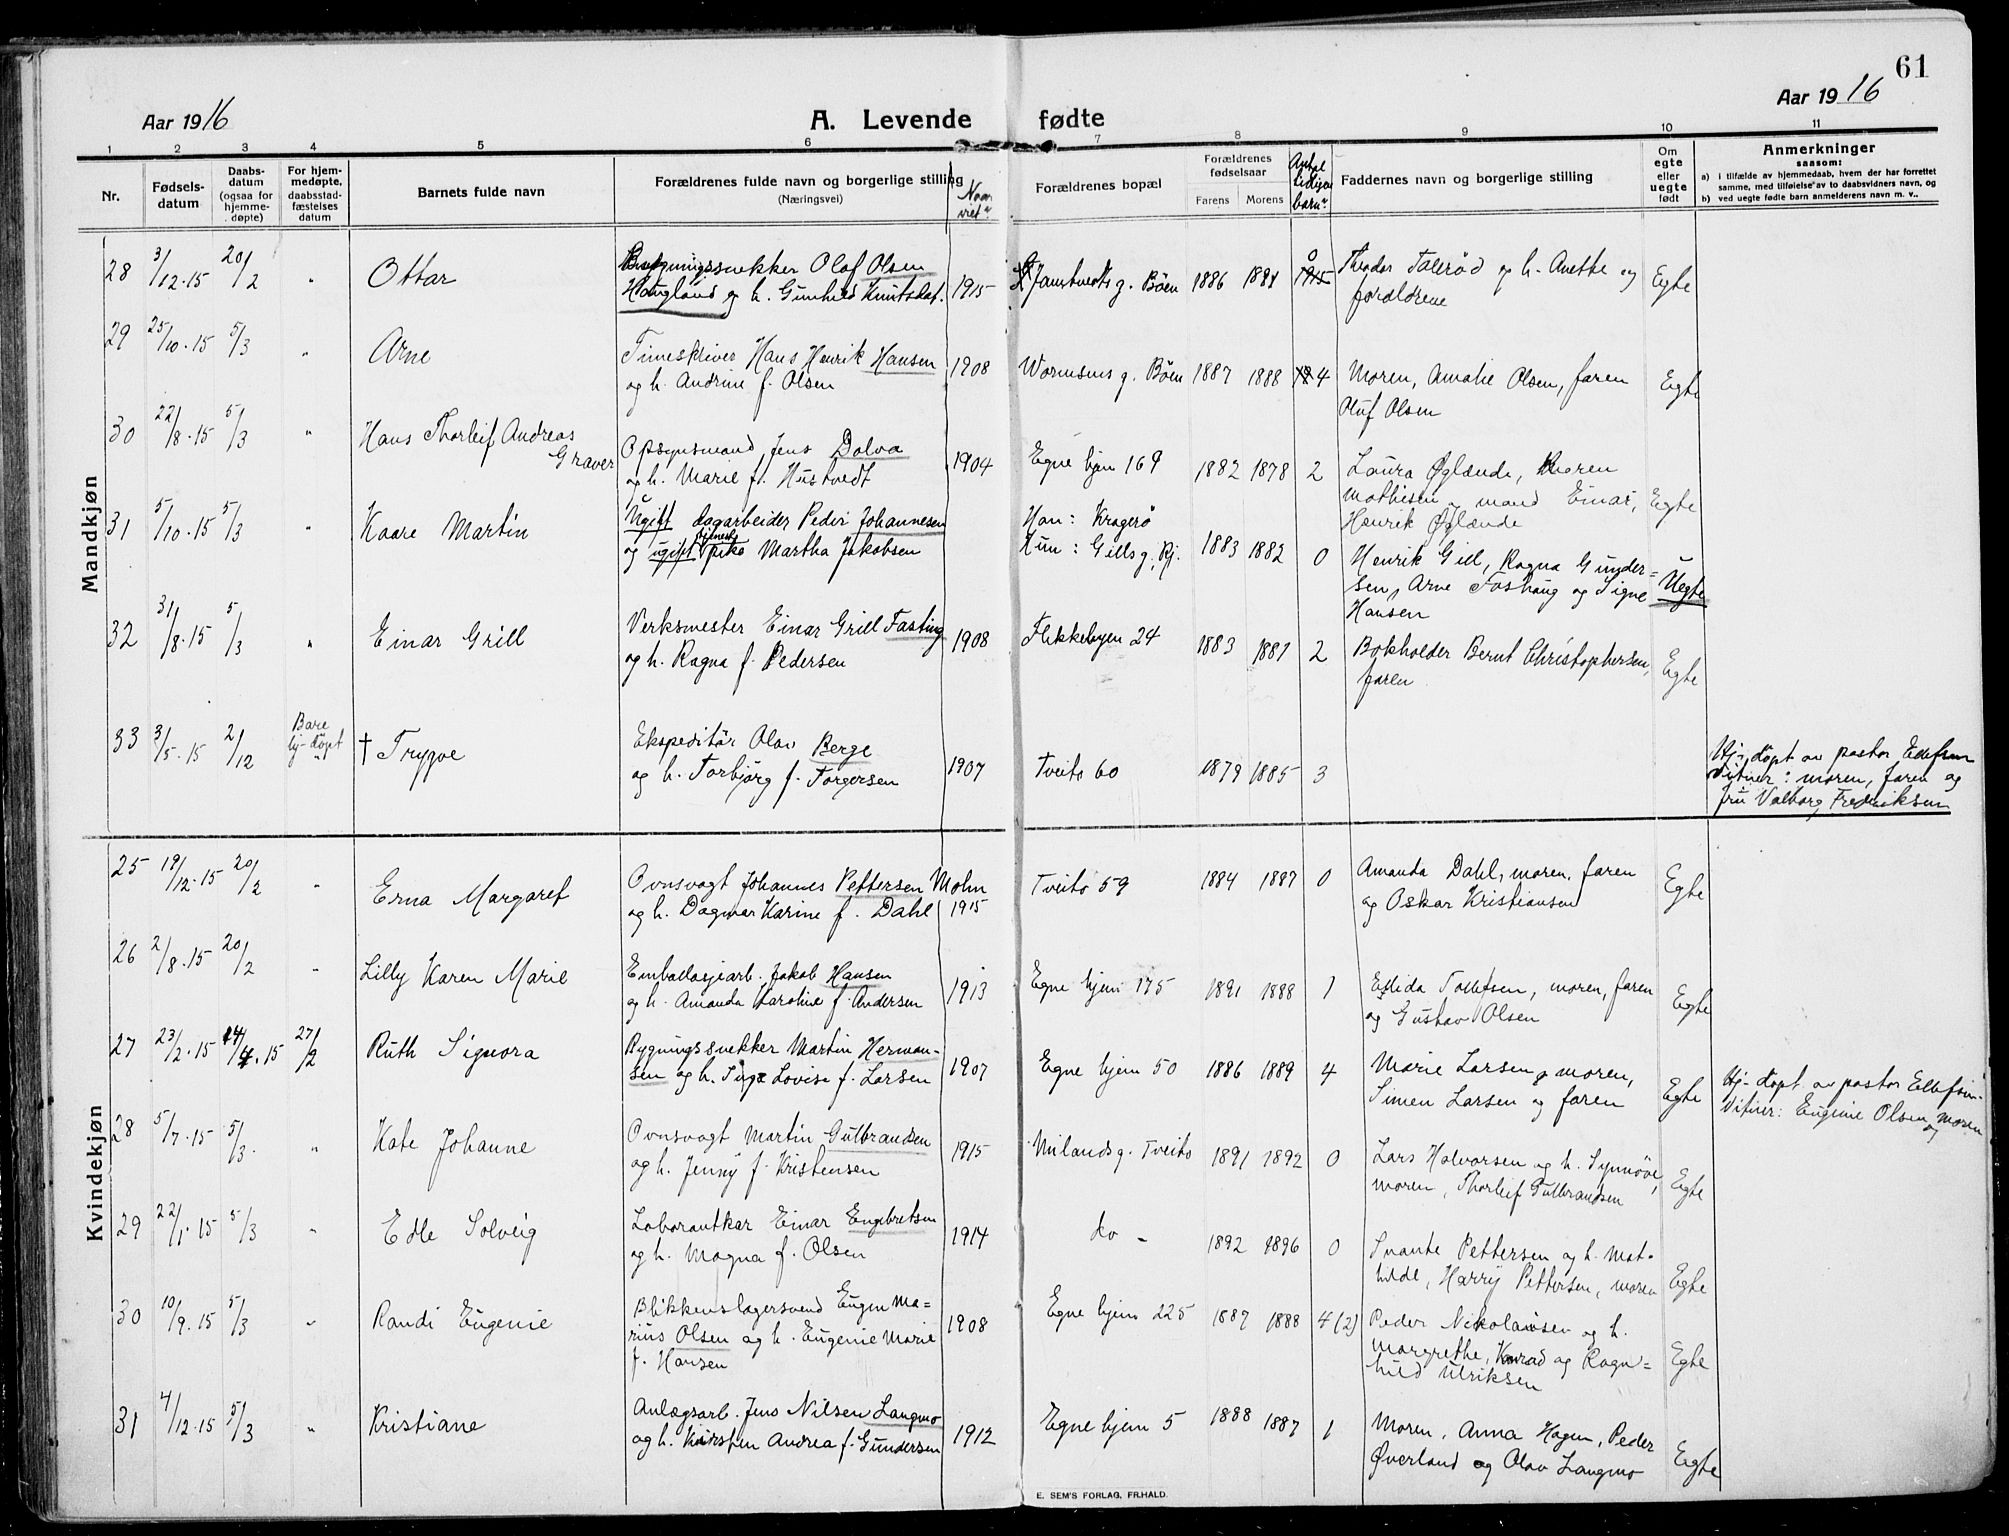 61
Aar 1916
A. Levende fødte
Aar 1916
1 2 3 4 5 6 7 8 9 10 11
Nr.
Fødsels-
datum
Daabs-
datum
(ogsaa for
hjemme-
døpte)
For hjem-
medøpte,
daabsstad-
fæstelses
datum
Barnets fulde navn
Forældrenes fulde navn og borgerlige stilling
(Næringsvei)
Forældrenes bopæl
Forældrenes
fødselsaar
Farens Morens
Faddernes navn og borgerlige stilling
Om
egte
eller
uegte
født
Anmerkninger
saasom:
a) i tilfælde av hjemmedaab, hvem der har forrettet
samme, med tilføielse av to daabsvidners navn, og
b) ved uegte fødte barn anmelderens navn m. v..
Mandkjøn
28 3/12.15 20/2 " Ottar
Bygningssnekker Olaf Olsen
Haugland og h. Gunhild Knutsdat. 1915
Jamtvedts g. Bøen 1886 1881 0
Theodor Tolerød og h. Anette og
forældrene
Egte
29 25/10.15 5/3 " Arne
Timeskriver Hans Henrik Hansen
og h. Andrine f. Olsen 1908
Wormsens g. Bøen 1887 1888 4
Moren, Amalie Olsen, faren
Oluf Olsen
Egte
30 22/8.15 5/3 " Hans Thorleif Andreas
Graver
Opsynsmand Jens Dolva
og h. Marie f. Hustvedt 1904
Egne hjem 169 1882 1878 2
Laura Øglænde, moren
mathisen, mand Einar,
Henrik Øglænde
Egte
31 5/10.15 5/3 " Kaare Martin
Ugift dagarbeider Peder Johannesen
og ugift tjeneste pike Martha Jakobsen
Han: Kragerø
Hun: Gills g, Rj. 1883 1882 0
Henrik Gill, Ragna Gunder-
sen, Arne Foshaug og Signe
Hansen
Uegte
32 31/8.15 5/3 " Einar Grill
Verksmester Einar Grill Fasting
og h. Ragna f. Pedersen 1908
Flekkebyen 24 1883 1881 2
Bokholder Bernt Christophersen,
faren
Egte
33 3/5.15 2/12 Bare
hj-døpt
† Trygve
Ekspeditør Olav Berge
og h. Torbjørg f. Torgersen 1907
Tveito 60 1879 1885 3
Hj-døpt av pastor Ellefsen
Vitner: moren, faren og
fru Valborg Fredriksen
Kvindekjøn
25 19/12.15 20/2 " Erna Margaret
Ovnsvagt Johannes Pettersen Mohn
og h. Dagmar Karine f. Dahl 1915
Tveito 59 1884 1887 0
Amanda Dahl, moren, faren
og Oskar Kristiansen
Egte
26 2/8.15 20/2 " Lilly Karen Marie
Emballasjearb. Jakob Hansen
og h. Amanda Karoline f. Andersen 1913
Egne hjem 175 1891 1888 1
Ellida Tollefsen, moren, faren
og Gustav Olsen
Egte
27 23/2.15 14/4.15 27/2 Ruth Signora
Bygningssnekker Martin Herman-
sen og h. Inga Lovise f. Larsen 1907
Egne hjem 50 1886 1889 4
Marie Larsen, moren,
Simen Larsen og faren
Egte
Hj-døpt av pastor Ellefsen.
Vitner: Eugenie Olsen og moren
28 5/7.15 5/3. " Kate Johanne
Ovnsvagt Martin Gulbrandsen
og h. Jenny f. Kristensen 1915
Milands g. Tveito 1891 1892 0
Lars Halvorsen og h. Synnøve,
moren, Thorleif Gulbrandsen
Egte
29 22/1.15 5/3 " Edle Solveig
Laborantkar Einar Engebretsen
og h. Magna f. Olsen 1914
do - 1892 1896 0
Svante Pettersen og h. Mat-
hilde, Harry Pettersen, moren
Egte
30 10/9.15 5/3 " Randi Eugenie
Blikkenslagersvend Eugen Ma=
rius Olsen og h. Eugenie Marie
f. Hansen 1908
Egne hjem 225 1887 1888 4 (2)
Peder Nikolaisen og h.
Margrethe, Konrad og Ragn=
hild Ulriksen
Egte
31 4/12.15 5/3 " Kristiane
Anlægsarb. Jens Nilsen Langmo
og h. Kirsten Andrea f. Gundersen 1912
Egne hjem 5 1888 1887 1
Moren, Anna Hagen, Peder
Øverland og Olav Langmo
Egte
E. SEM'S FORLAG, FR.HALD.